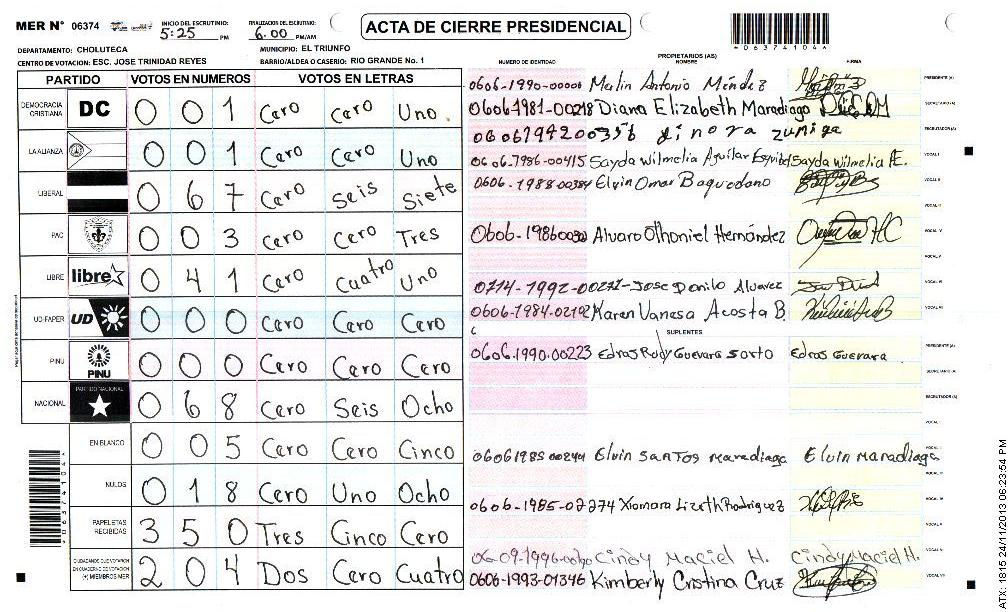 MER Nº 06374 INICIO DEL ESCRUTINIO: 5:25 PM FINALIZACION DEL ESCRUTINIO: 6:00 PM/AM
ACTA DE CIERRE PRESIDENCIAL
*06374104*
DEPARTAMENTO: CHOLUTECA MUNICIPIO: EL TRIUNFO
CENTRO DE VOTACION: ESC. JOSE TRINIDAD REYES BARRIO/ALDEA O CASERIO: RIO GRANDE No. 1
PARTIDO VOTOS EN NUMEROS VOTOS EN LETRAS
DEMOCRACIA CRISTIANA DC 0 0 1 Cero Cero Uno
LA ALIANZA 0 0 1 Cero Cero Uno
LIBERAL 0 6 7 Cero Seis Siete
PAC 0 0 3 Cero Cero Tres
LIBRE libre 0 4 1 Cero Cuatro Uno
UD-FAPER UD 0 0 0 Cero Cero Cero
PINU PINU 0 0 0 Cero Cero Cero
NACIONAL PARTIDO NACIONAL 0 6 8 Cero Seis Ocho
EN BLANCO 0 0 5 Cero Cero Cinco
NULOS 0 1 8 Cero Uno Ocho
PAPELETAS RECIBIDAS 3 5 0 Tres Cinco Cero
CIUDADANOS QUE VOTARON EN CUADERNO DE VOTACION (+) MIEMBROS MER 2 0 4 Dos Cero Cuatro
*06374104*
PROPIETARIOS (AS)
NUMERO DE IDENTIDAD NOMBRE FIRMA
0606-1990-00001 Merlin Antonio Méndez PRESIDENTE (A)
0606-1981-00218 Diana Elizabeth Maradiaga SECRETARIO (A)
0606199200356 dinora zuniga ESCRUTADOR (A)
0606-1986-00415 Sayda Wilmelia Aguilar Esquibel Sayda Wilmelia AE. VOCAL I
0606-1988-00384 Elvin Omar Baquedano VOCAL II
VOCAL III
Alvaro Othoniel Hernández VOCAL IV
VOCAL V
0714-1992-00271 Jose Danilo Alvarez VOCAL VI
0606-1984-02192 Karen Vanesa Acosta B. VOCAL VII
SUPLENTES
0606-1990-00223 Edras Rudy Guevara Sorto Edras Guevara PRESIDENTE (A)
SECRETARIO (A)
ESCRUTADOR (A)
VOCAL I
06061985 00244 Elvin Santos Maradiaga Elvin Maradiaga VOCAL II
VOCAL III
0606-1985-02274 Xiomara Lizeth Rodriguez VOCAL IV
VOCAL V
Cindy Maciel H. Cindy Maciel H. VOCAL VI
0606-1993-01346 Kimberly Cristina Cruz VOCAL VII
ATX: 1815 24/11/2013 06:23:54 PM